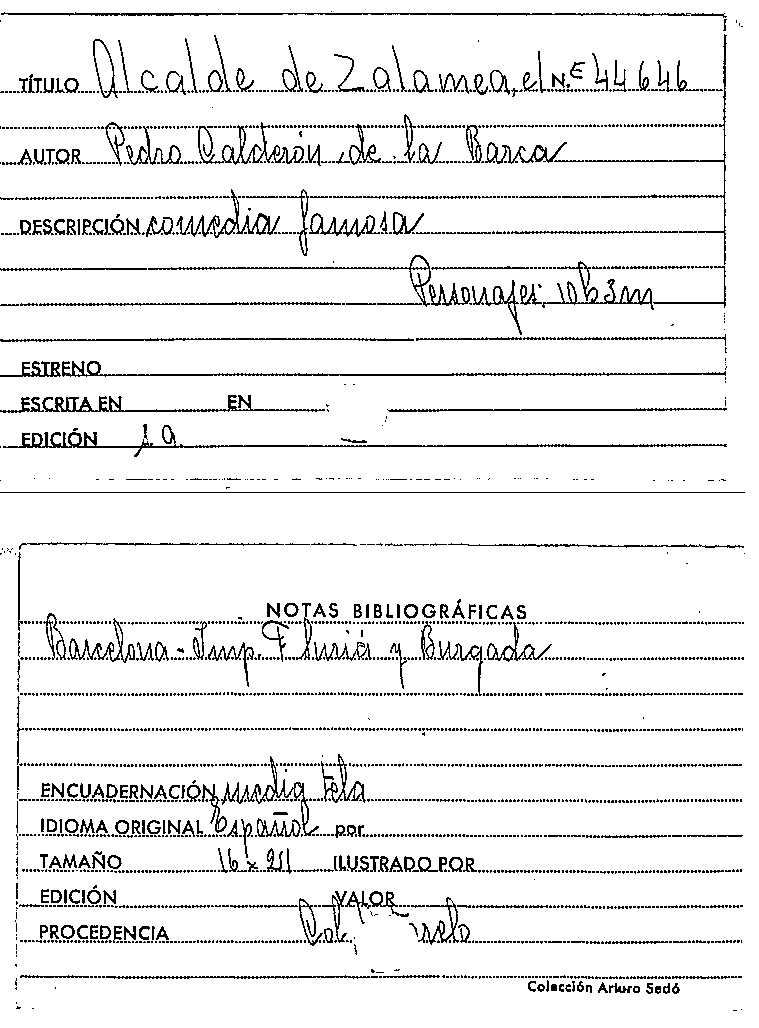 TÍTULO Alcalde de Zalamea, el N.E 44646
AUTOR Pedro Calderón de la Barca
DESCRIPCIÓN comedia famosa
Personajes: 10h 3m
ESTRENO
ESCRITA EN EN
EDICIÓN 1a
NOTAS BIBLIOGRÁFICAS
Barcelona - Imp. F Suriá y Burgada
ENCUADERNACIÓN media tela
IDIOMA ORIGINAL Español por
TAMAÑO 16 x 21 ILUSTRADO POR
EDICIÓN VALOR
PROCEDENCIA Col.
Colección Arturo Sedó